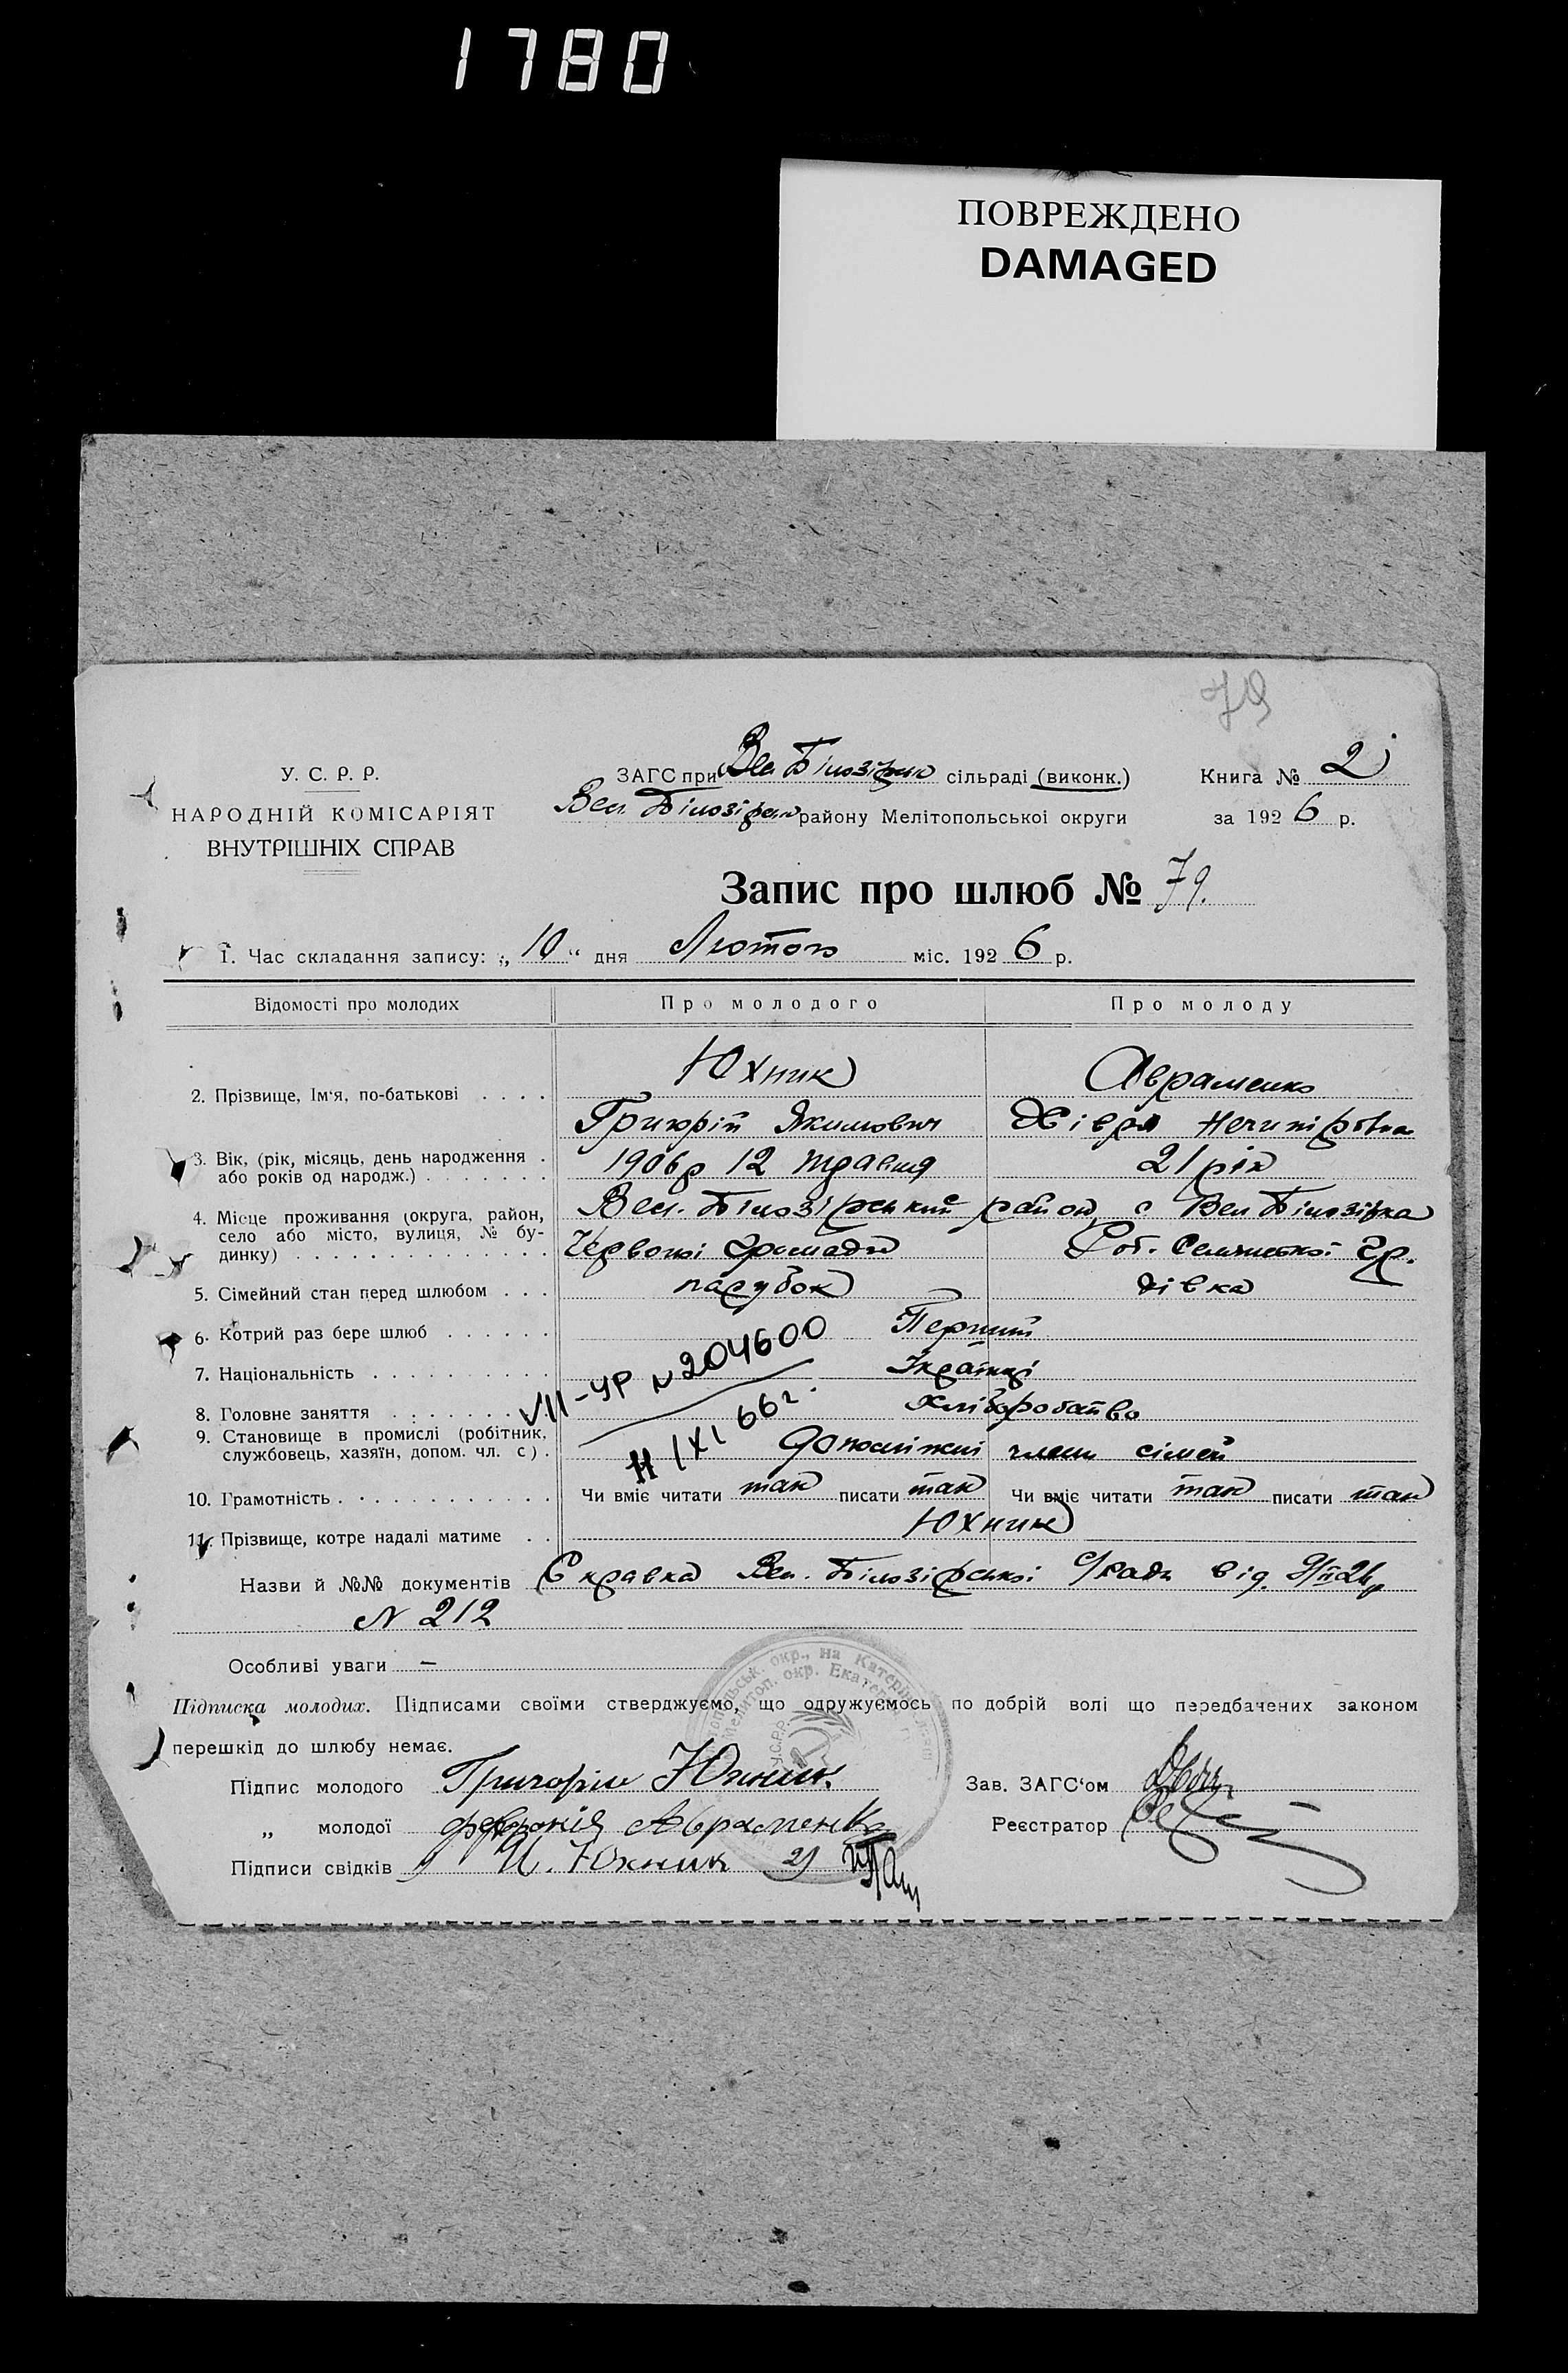 1780
ПОВРЕЖДЕНО
DAMAGED
79
У. С. Р. Р.
НАРОДНІЙ КОМІСАРІЯТ
ВНУТРІШНІХ СПРАВ
ЗАГС при Вел Білозірск сільраді (виконк.)
Вел. Білозірск району Мелітопольської округи
Книга № 2
за 1926 р.
Запис про шлюб № 79.
1. Час складання запису: „10“ дня Лютого міс. 1926 р.
Відомості про молодих
Про молодого
Про молоду
2. Прізвище, Ім‘я, по-батькові . . . .
Юхник
Авраменко
Григорій Якимович
Хівря Нечипірovна
3. Вік, (рік, місяць, день народження .
або років од народж.) . . . . . . .
1906р 12 травня
21 рік
4. Місце проживання (округа, район,
село або місто, вулиця, № бу-
динку) . . . . . . . . . . . . . .
Вел. Білозірський район с Вел Білозірка
Червоної Громади
Роб. Селянської Гр.
5. Сімейний стан перед шлюбом . . .
парубок
дівка
6. Котрий раз бере шлюб . . . . . .
Перший
7. Національність . . . . . . . . . .
Українці
8. Головне заняття . . . . . . .
Хліборобство
VII-УР № 204600
11/XI 66г.
9. Становище в промислі (робітник,
службовець, хазяїн, допом. чл. с) .
Допоміжні члени сімей
10. Грамотність . . . . . . . . . . . .
Чи вміє читати так писати так
Чи вміє читати так писати так
11. Прізвище, котре надалі матиме . .
Юхник
Назви й №№ документів Справка Вел. Білозірської С/ради від.
N 212
Особливі уваги —
Підписка молодих. Підписами своїми стверджуємо, що одружуємось по добрій волі що передбачених законом
перешкід до шлюбу немає.
Підпис молодого Григорій Юхник.
„ молодої Февронія Авраменко
Підписи свідків И. Юхник 2)
Зав. ЗАГС‘ом
Реєстратор
окр., на Катерин
Мелитоп. окр. Екатер
У.С.Р.Р.